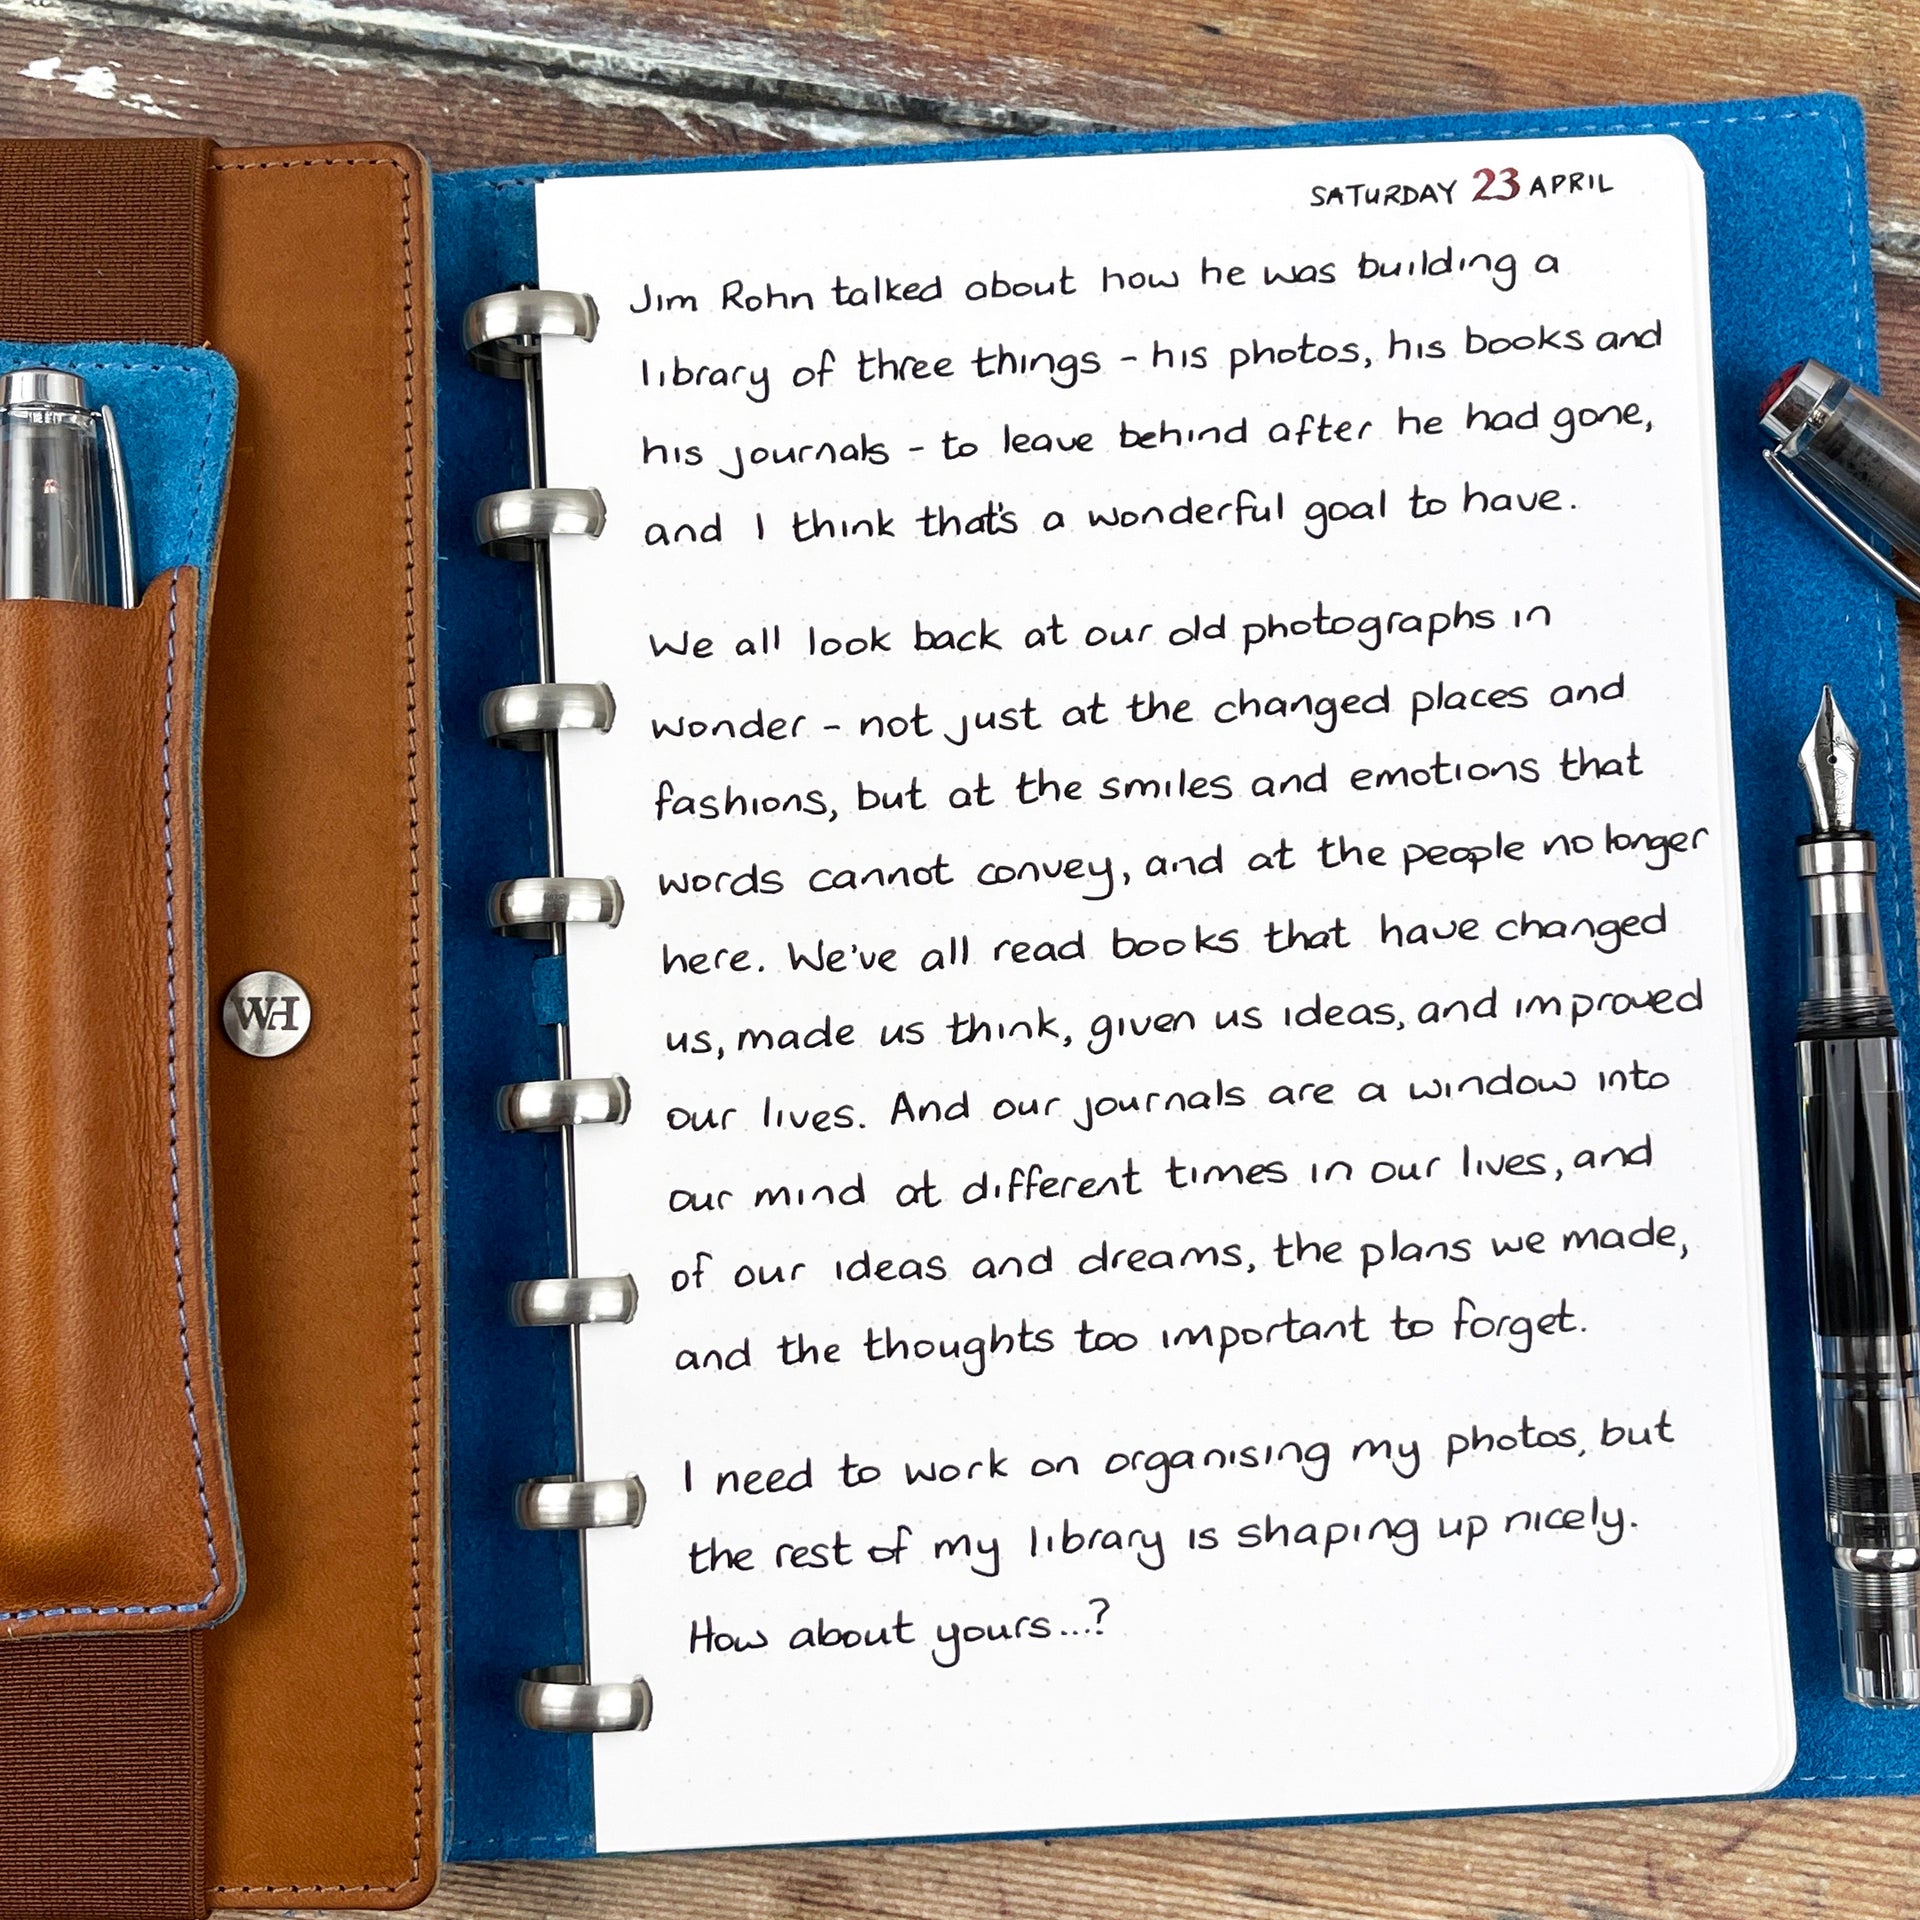 SATURDAY 23 APRIL
Jim Rohn talked about how he was building a
library of three things - his photos, his books and
his journals - to leave behind after he had gone,
and I think that's a wonderful goal to have.
We all look back at our old photographs in
wonder - not just at the changed places and
fashions, but at the smiles and emotions that
words cannot convey, and at the people no longer
here. We've all read books that have changed
us, made us think, given us ideas, and improved
our lives. And our journals are a window into
our mind at different times in our lives, and
of our ideas and dreams, the plans we made,
and the thoughts too important to forget.
I need to work on organising my photos, but
the rest of my library is shaping up nicely.
How about yours...?
WH